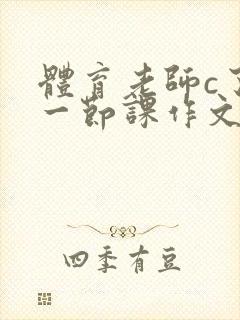 體育老師c了
一節課作文
四季有豆